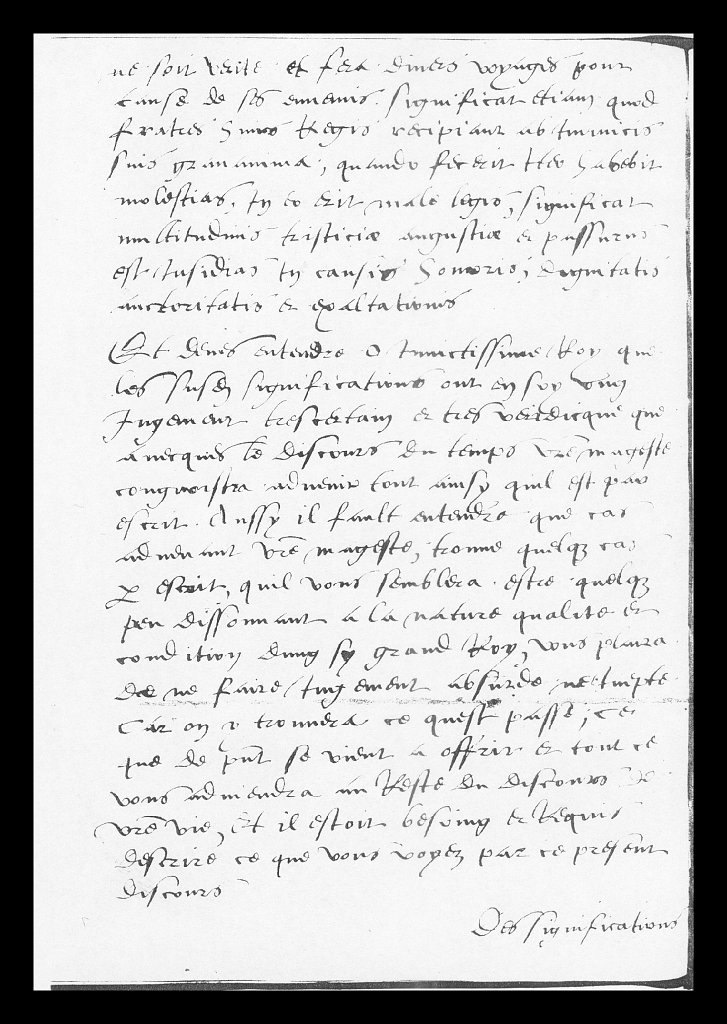 ne soit verite et fera divers voyages pour
cause de ses ennemis. Significat etiam quod
fratres huius Regis recipiant ab inimicis
suis gravamina, quando fecerit iter habebit
molestias, In eo erit male legis, significat
multitudinis tristiciæ angustiæ et passurus
est Insidias In causis honoris, dignitatis
auctoritatis et exaltationis
Et debves entendre O Invictissime Roy que
les susd significations ont en soy vng
Jugement trescertain et tres veridicque que
avecques le discours du temps vre mageste
congnoistra advenir tout ainsy quil est par
escrit. Aussy il fault entendre que cas
advenant vre mageste, trouve quelq cas
p escrit, quil vous semblera estre quelq
peu dissonnant a la nature qualite et
condition dung sy grand Roy, vous plaira
de ne faire Jugement absurde ne inepte
Car on y trouvera ce quest passé, ce
que de pnt se vient a offrir et tout ce
vous adviendra au Reste du discours de
vre vie, Et il estoit besoing et Requis
descrire ce que vous voyez par ce present
discours
Des significations